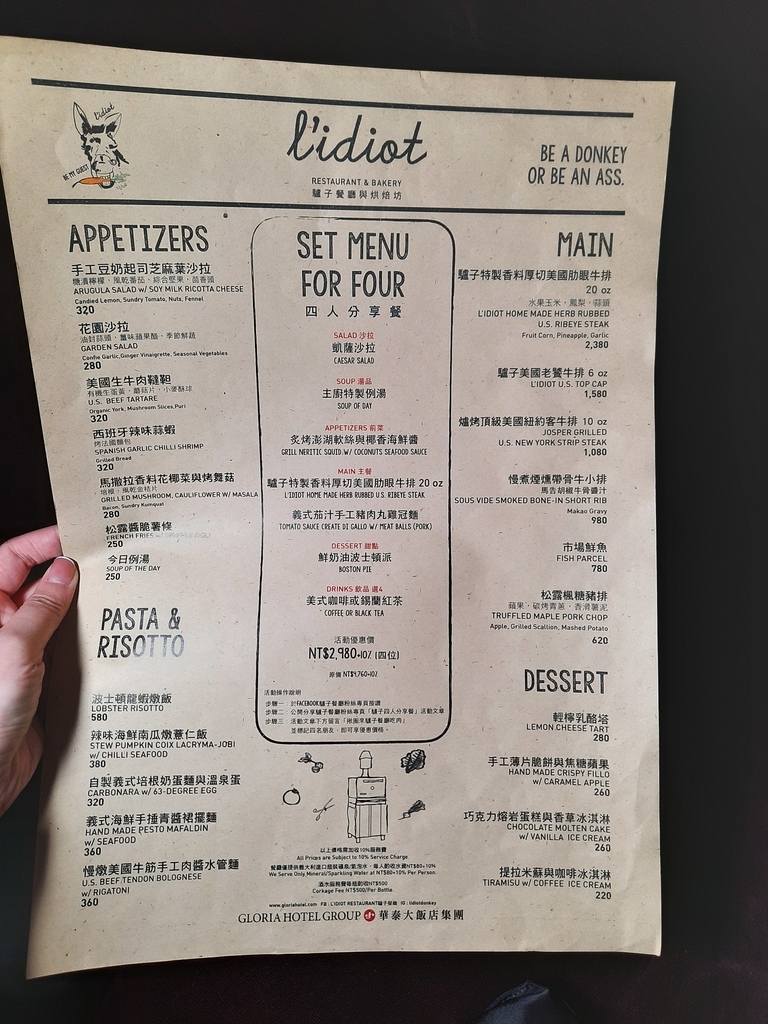 l'idiot
BE MY GUEST
l'idiot
RESTAURANT & BAKERY
驢子餐廳與烘焙坊
BE A DONKEY
OR BE AN ASS.
APPETIZERS
手工豆奶起司芝麻葉沙拉
糖漬檸檬，風乾番茄，綜合堅果，茴香頭
ARUGULA SALAD w/ SOY MILK RICOTTA CHEESE
Candied Lemon, Sundry Tomato, Nuts, Fennel
320
花園沙拉
油封蒜頭，薑味蘋果醋，季節鮮蔬
GARDEN SALAD
Confie Garlic,Ginger Vinaigrette, Seasonal Vegetables
280
美國生牛肉韃靼
有機生蛋黃，蘑菇片，小麥酥球
U.S. BEEF TARTARE
Organic York, Mushroom Slices,Puri
320
西班牙辣味蒜蝦
烤法國麵包
SPANISH GARLIC CHILLI SHRIMP
Grilled Bread
320
馬撒拉香料花椰菜與烤舞菇
培根，風乾金桔片
GRILLED MUSHROOM, CAULIFLOWER W/ MASALA
Bacon, Sundry Kumquat
280
松露醬脆薯條
FRENCH FRIES w/
250
今日例湯
SOUP OF THE DAY
250
PASTA &
RISOTTO
波士頓龍蝦燉飯
LOBSTER RISOTTO
580
辣味海鮮南瓜燉薏仁飯
STEW PUMPKIN COIX LACRYMA-JOBI
w/ CHILLI SEAFOOD
380
自製義式培根奶蛋麵與溫泉蛋
CARBONARA w/ 63-DEGREE EGG
320
義式海鮮手捶青醬裙擺麵
HAND MADE PESTO MAFALDIN
w/ SEAFOOD
360
慢燉美國牛筋手工肉醬水管麵
U.S. BEEF TENDON BOLOGNESE
w/ RIGATONI
360
SET MENU
FOR FOUR
四人分享餐
SALAD 沙拉
凱薩沙拉
CAESAR SALAD
SOUP 湯品
主廚特製例湯
SOUP OF DAY
APPETIZERS 前菜
炙烤澎湖軟絲與椰香海鮮醬
GRILL NERITIC SQUID W/ COCONUTS SEAFOOD SAUCE
MAIN 主餐
驢子特製香料厚切美國肋眼牛排 20 oz
L'IDIOT HOME MADE HERB RUBBED U.S. RIBEYE STEAK
義式茄汁手工豬肉丸雞冠麵
TOMATO SAUCE CREATE DI GALLO W/ MEAT BALLS (PORK)
DESSERT 甜點
鮮奶油波士頓派
BOSTON PIE
DRINKS 飲品 選4
美式咖啡或錫蘭紅茶
COFFEE OR BLACK TEA
活動優惠價
NT$2,980+10% (四位)
原價 NT$3,760+10%
活動操作說明
步驟一：於FACEBOOK驢子餐廳粉絲專頁按讚
步驟二：公開分享驢子餐廳粉絲專頁「驢子四人分享餐」活動文章
步驟三：活動文章下方留言「揪團來驢子餐廳吃肉」
並標記四名朋友，即可享優惠價格。
以上價格需加收10%服務費
All Prices are Subject to 10% Service Charge.
餐廳僅提供義大利進口瓶裝礦泉/氣泡水，每人酌收水資NT$80+10%
We Serve Only Mineral/Sparkling Water at NT$80+10% Per Person.
酒水服務費每瓶酌收NT$500
Corkage Fee NT$500/Per Bottle.
www.gloriahotel.com FB : L'IDIOT RESTAURANT驢子餐廳 IG : lidiotdonkey
GLORIA HOTEL GROUP 華泰大飯店集團
MAIN
驢子特製香料厚切美國肋眼牛排
20 oz
水果玉米，鳳梨，蒜頭
L'IDIOT HOME MADE HERB RUBBED
U.S. RIBEYE STEAK
Fruit Corn, Pineapple, Garlic
2,380
驢子美國老饕牛排 6 oz
L'IDIOT U.S. TOP CAP
1,580
爐烤頂級美國紐約客牛排 10 oz
JOSPER GRILLED
U.S. NEW YORK STRIP STEAK
1,080
慢煮煙燻帶骨牛小排
馬告胡椒牛骨醬汁
SOUS VIDE SMOKED BONE-IN SHORT RIB
Makao Gravy
980
市場鮮魚
FISH PARCEL
780
松露楓糖豬排
蘋果，碳烤青蔥，香滑薯泥
TRUFFLED MAPLE PORK CHOP
Apple, Grilled Scallion, Mashed Potato
620
DESSERT
輕檸乳酪塔
LEMON.CHEESE TART
280
手工薄片脆餅與焦糖蘋果
HAND MADE CRISPY FILLO
w/ CARAMEL APPLE
260
巧克力熔岩蛋糕與香草冰淇淋
CHOCOLATE MOLTEN CAKE
w/ VANILLA ICE CREAM
260
提拉米蘇與咖啡冰淇淋
TIRAMISU w/ COFFEE ICE CREAM
220